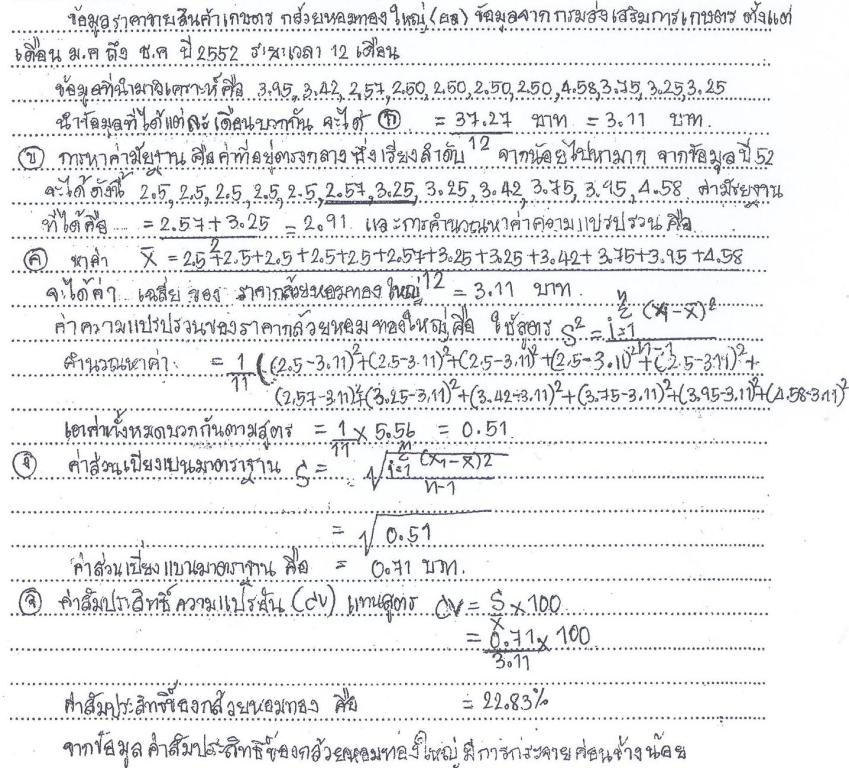 ข้อมูลราคาขายสินค้าเกษตร กล้วยหอมทองใหญ่ (ผล) ข้อมูลจากกรมส่งเสริมการเกษตร ตั้งแต่
เดือน ม.ค ถึง ธ.ค ปี 2552 ระยะเวลา 12 เดือน
ข้อมูลที่นำมาวิเคราะห์คือ 3.95, 3.42, 2.57, 2.50, 2.50, 2.50, 2.50, 4.58, 3.75, 3.25, 3.25
นำข้อมูลที่ได้แต่ละเดือนบวกกัน จะได้ ก = 37.27 บาท = 3.11 บาท.
12
ข การหาค่ามัธยฐาน คือค่าที่อยู่ตรงกลาง ซึ่งเรียงลำดับ จากน้อยไปหามาก จากข้อมูลปี 52
จะได้ดังนี้ 2.5, 2.5, 2.5, 2.5, 2.5, 2.57, 3.25, 3.25, 3.42, 3.75, 3.95, 4.58 ค่ามัธยฐาน
ที่ได้คือ = 2.57 + 3.25 = 2.91 และการคำนวณหาค่าความแปรปรวน คือ
2
ค หาค่า X̄ = 2.5+2.5+2.5+2.5+2.5+2.57+3.25+3.25+3.42+3.75+3.95+4.58
12
จะได้ค่า เฉลี่ย ของ ราคากล้วยหอมทองใหญ่ = 3.11 บาท.
ค่าความแปรปรวนของราคากล้วยหอมทองใหญ่ คือ ใช้สูตร S² = n Σ i=1 (X₁-X̄)²
n-1
คำนวณหาค่า = 1/11 ((2.5-3.11)²+(2.5-3.11)²+(2.5-3.11)²+(2.5-3.11)²+(2.5-3.11)²+
(2.57-3.11)²+(3.25-3.11)²+(3.42-3.11)²+(3.75-3.11)²+(3.95-3.11)²+(4.58-3.11)²
เอาค่าทั้งหมดบวกกันตามสูตร = 1/11 x 5.56 = 0.51
ง ค่าส่วนเบี่ยงเบนมาตราฐาน S = √ n Σ i=1 (X₁-X̄)2
n-1
= √0.51
ค่าส่วนเบี่ยงแบนมาตราฐาน คือ = 0.71 บาท.
จ ค่าสัมประสิทธิ์ความแปรผัน (cv) แทนสูตร cv = S/X̄ x 100
= 0.71 x 100
3.11
ค่าสัมประสิทธิ์ของกล้วยหอมทอง คือ = 22.83%
จากข้อมูล ค่าสัมประสิทธิ์ของกล้วยหอมทองใหญ่ มีการกระจายค่อนข้างน้อย